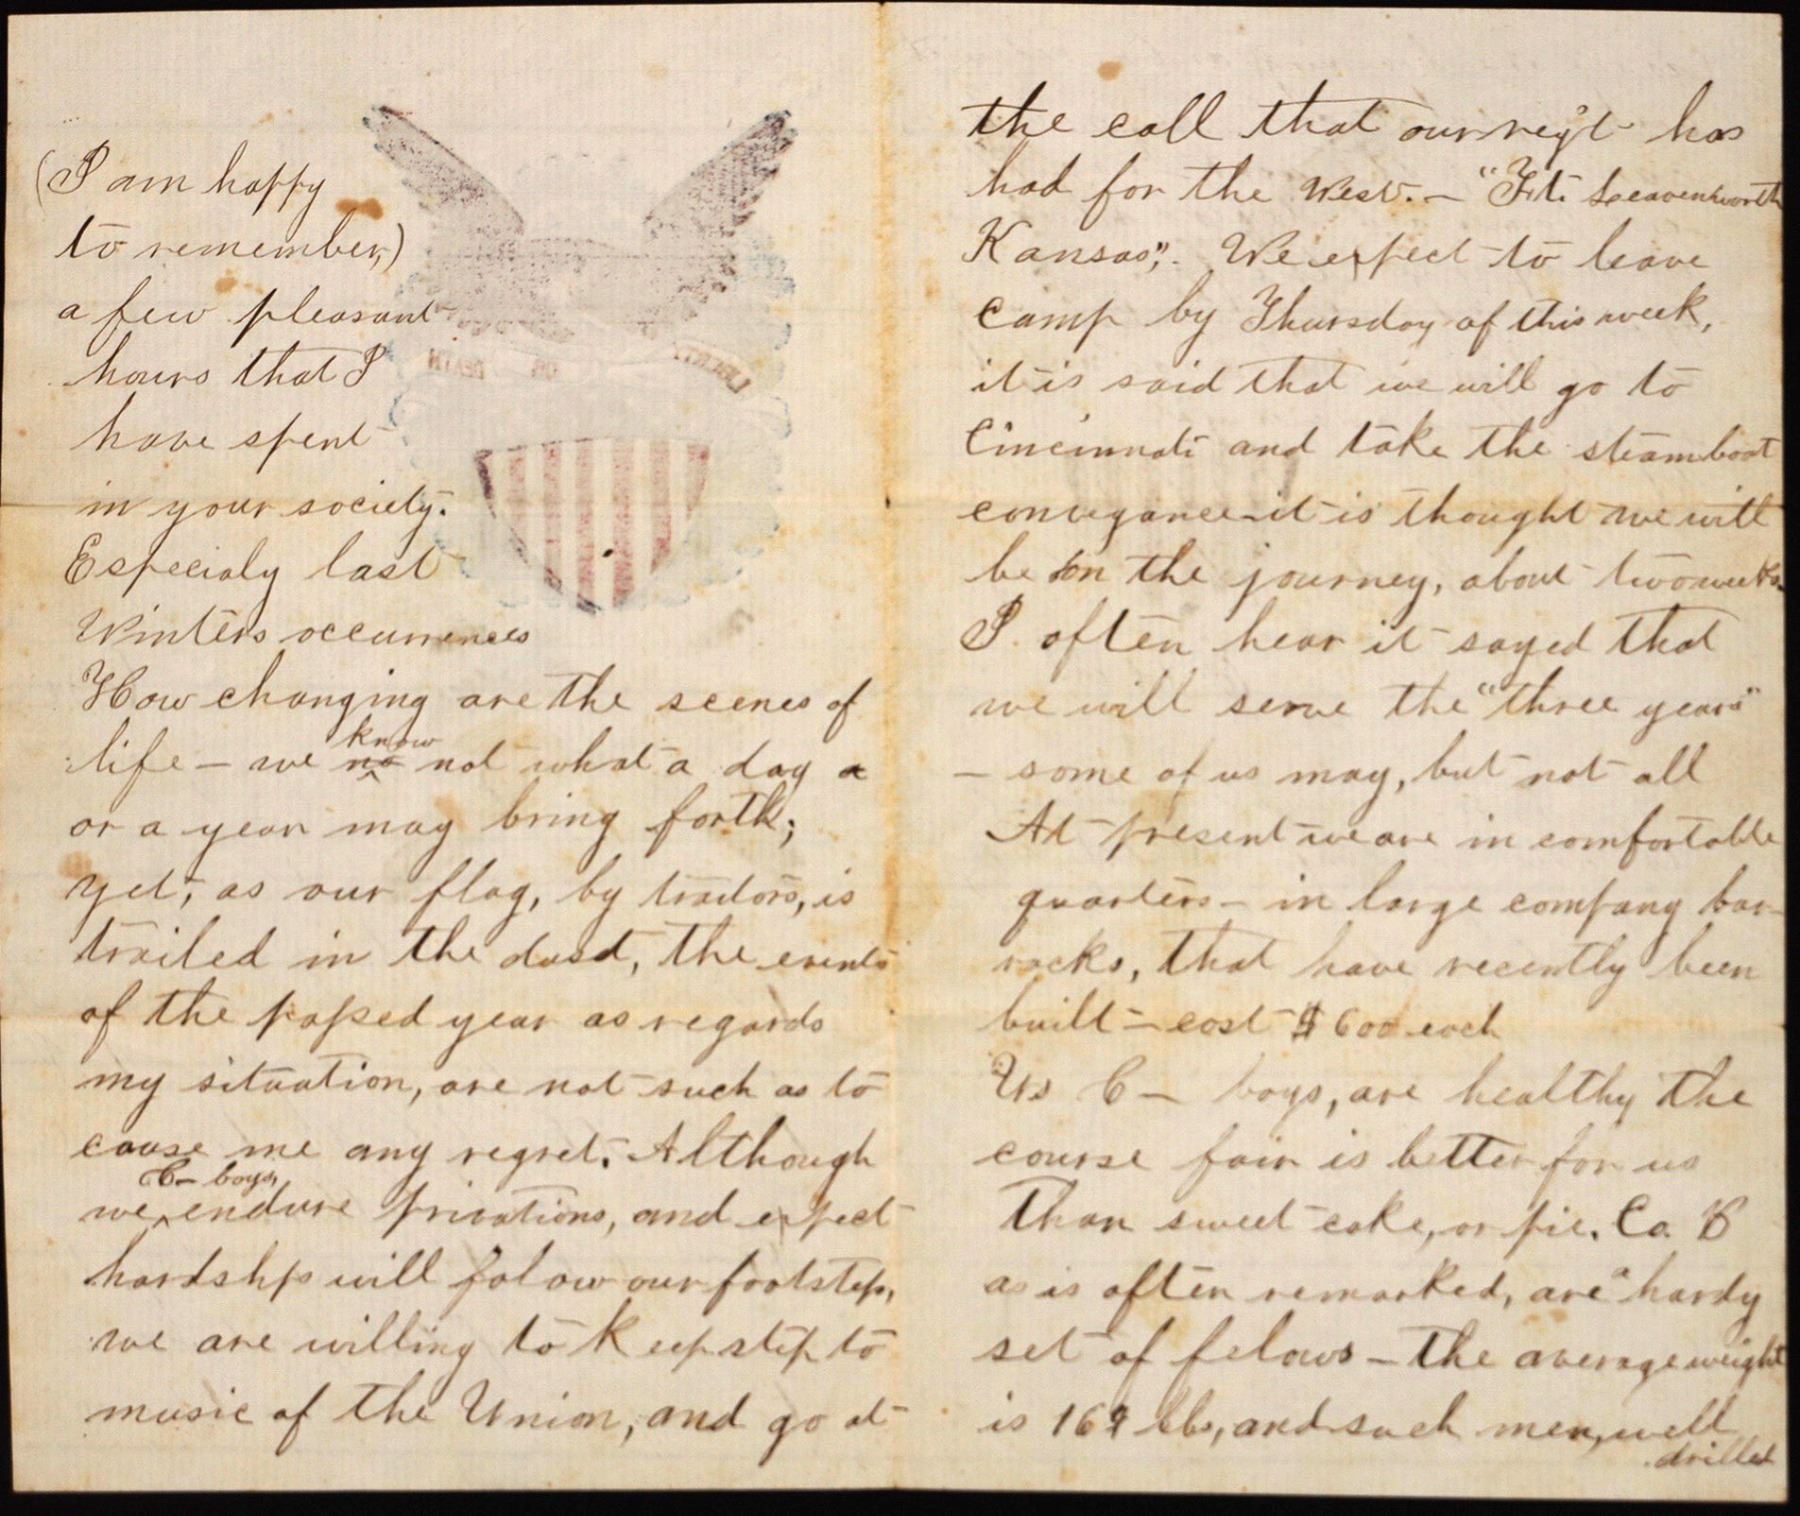 (I am happy
to remember,)
a few pleasant
hours that I
have spent
in your society.
Especialy last
Winters occurrences
How changing are the scenes of
know
life – we no not what a day a
or a year may bring forth;
yet, as our flag, by traitors, is
trailed in the dust, the events
of the passed year as regards
my situation, are not such as to
cause me any regret. Although
C– boys,
we ^ endure privations, and expect
hardships will folow our footsteps,
we are willing to keep step to
music of the Union, and go at
LIBERTY OR DEATH
the call that our reg't has
had for the West. – "Ft. Leavenworth
Kansas",. We expect to leave
Camp by Thursday of this week,
it is said that we will go to
Cincinnati and take the steamboat
conveyance – it is thought we will
be on the journey, about two weeks.
I often hear it sayed that
we will serve the "three years"
– some of us may, but not all
At present we are in comfortable
quarters – in large company bar-
racks, that have recently been
built – cost $600 each
Us C – boys, are healthy the
course fair is better for us
than sweet cake, or pie. Co. B
as is often remarked, are a hardy
set of felows – the average weight
is 169 lbs, and such men, well
drilled